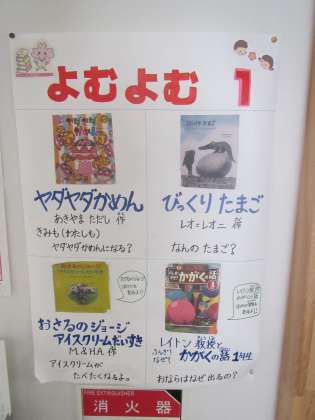 よむよむ 1
ヤダヤダかめん
あきやま ただし 作
きみも(わたしも)
ヤダヤダかめんになる?
びっくり たまご
レオ=レオニ 作
なんの たまご?
おさるのジョージ
アイスクリームだいすき
M.&H.A. 作
アイスクリームが
たべたくなるよ。
レイトン教授と
ふしぎ なぜ? かがくの話 1年生
おならはなぜ出るの?
FIRE EXTINGUISHER
消火器